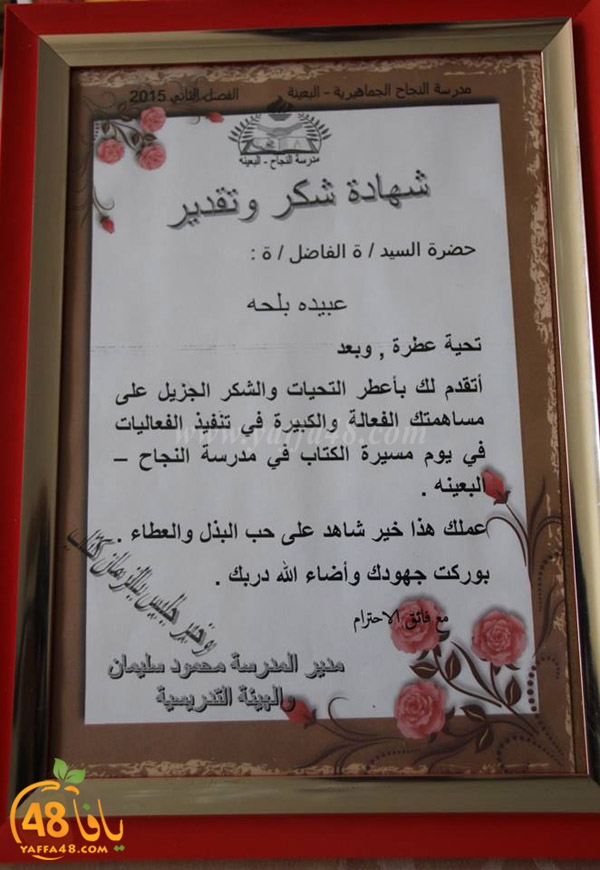 مدرسة النجاح الجماهيرية - البعينة الفصل الثاني 2015
مدرسة النجاح - البعينه
شهادة شكر وتقدير
حضرة السيد / ة الفاضل / ة :
عبيده بلحه
تحية عطرة , وبعد
أتقدم لك بأعطر التحيات والشكر الجزيل على
مساهمتك الفعالة والكبيرة في تنفيذ الفعاليات
في يوم مسيرة الكتاب في مدرسة النجاح –
البعينه .
عملك هذا خير شاهد على حب البذل والعطاء .
بوركت جهودك وأضاء الله دربك .
مع فائق الاحترام
وخير جليس بالزمان كتاب
مدير المدرسة محمود سليمان
والهيئة التدريسية
www.yaffa48.com
يافا 48
YAFFA48.COM